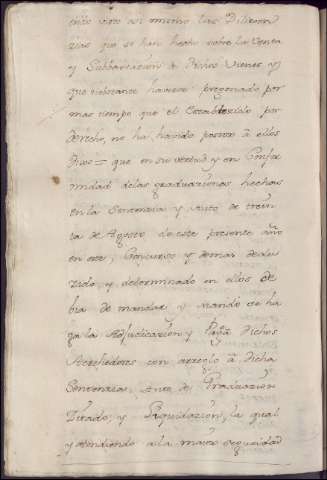 visto asi mismo las Diligen
cias que se han hecho sobre la Venta
y Subhastacion de dichos Vienes y
que noobstante haverse pregonado por
mas tiempo que el establecido por
derecho, no ha havido postor à ellos
Dixo = que en su virtud y en Confor
midad delas graduaziones hechas
en la Sentenzia y Auto de trein
ta de Agosto de este presente año
en este Concurso y demas dedu
zido, y determinado en ellos De
bia de mandar y mandò se ha
ga la Adjudicazion y Pago à dichos
Acrehedores con arreglo à dicha
Sentenzia Auto de Graduazion
Zitado, y Liquidazion, la qual
y atendiendo ala maior seguridad